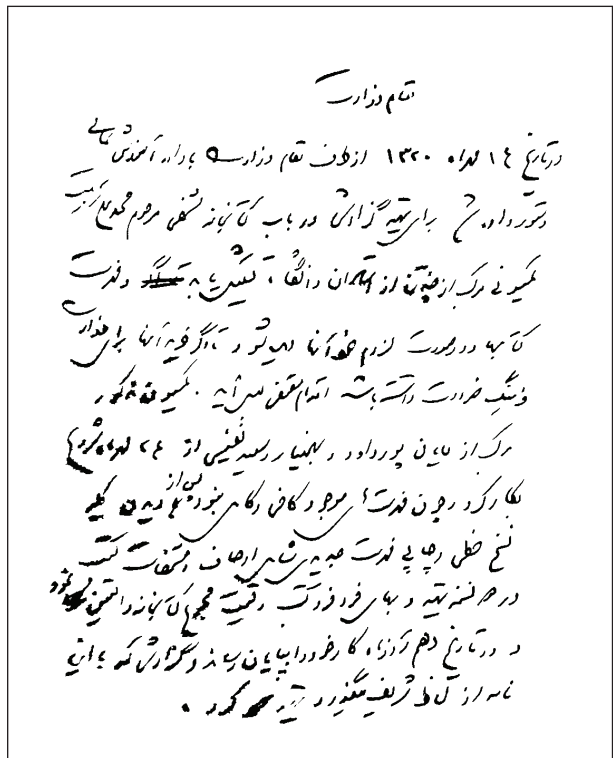 مقام وزارت
در تاریخ ۱۴ مهرماه ۱۳۲۰ از طرف مقام وزارت باداره آموزش عالی
دستور داده شد برای تهیه گزارش در باب کتابخانه شخصی مرحوم محمدعلی تربیت
کمیسیونی مرکب از چند تن از استادان دانشگاه تشکیل یابد و فهرست
کتابها و در صورت لزوم خود آنها دیده شود تا اگر خرید آنها برای وزارت
فرهنگ ضرورت داشته باشد اقدام مقتضی بعمل آید. کمیسیون مذکور
مرکب از آقایان پورداود و بهمنیار و سعید نفیسی از ۲۴ مهرماه شروع
بکار کرد و چون فهرست‌های موجود کافی و کامل نبود پس از دیدن کلیه
نسخ خطی و چاپی فهرست جدیدی شامل اوصاف و مشخصات کتب
در سه نسخه تهیه و بهای فرد فرد کتب و قیمت مجموع کتابخانه را تعیین نمود
و در تاریخ دهم آذرماه کار خود را بپایان رساند و گزارشی که با این
نامه از لحاظ شریف میگذرد تهیه کرد.